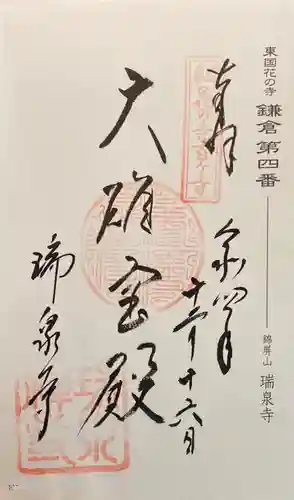 東国花の寺 鎌倉 第四番
錦屏山 瑞泉寺
奉拝
令和四年
十二月十六日
大雄宝殿
瑞泉寺